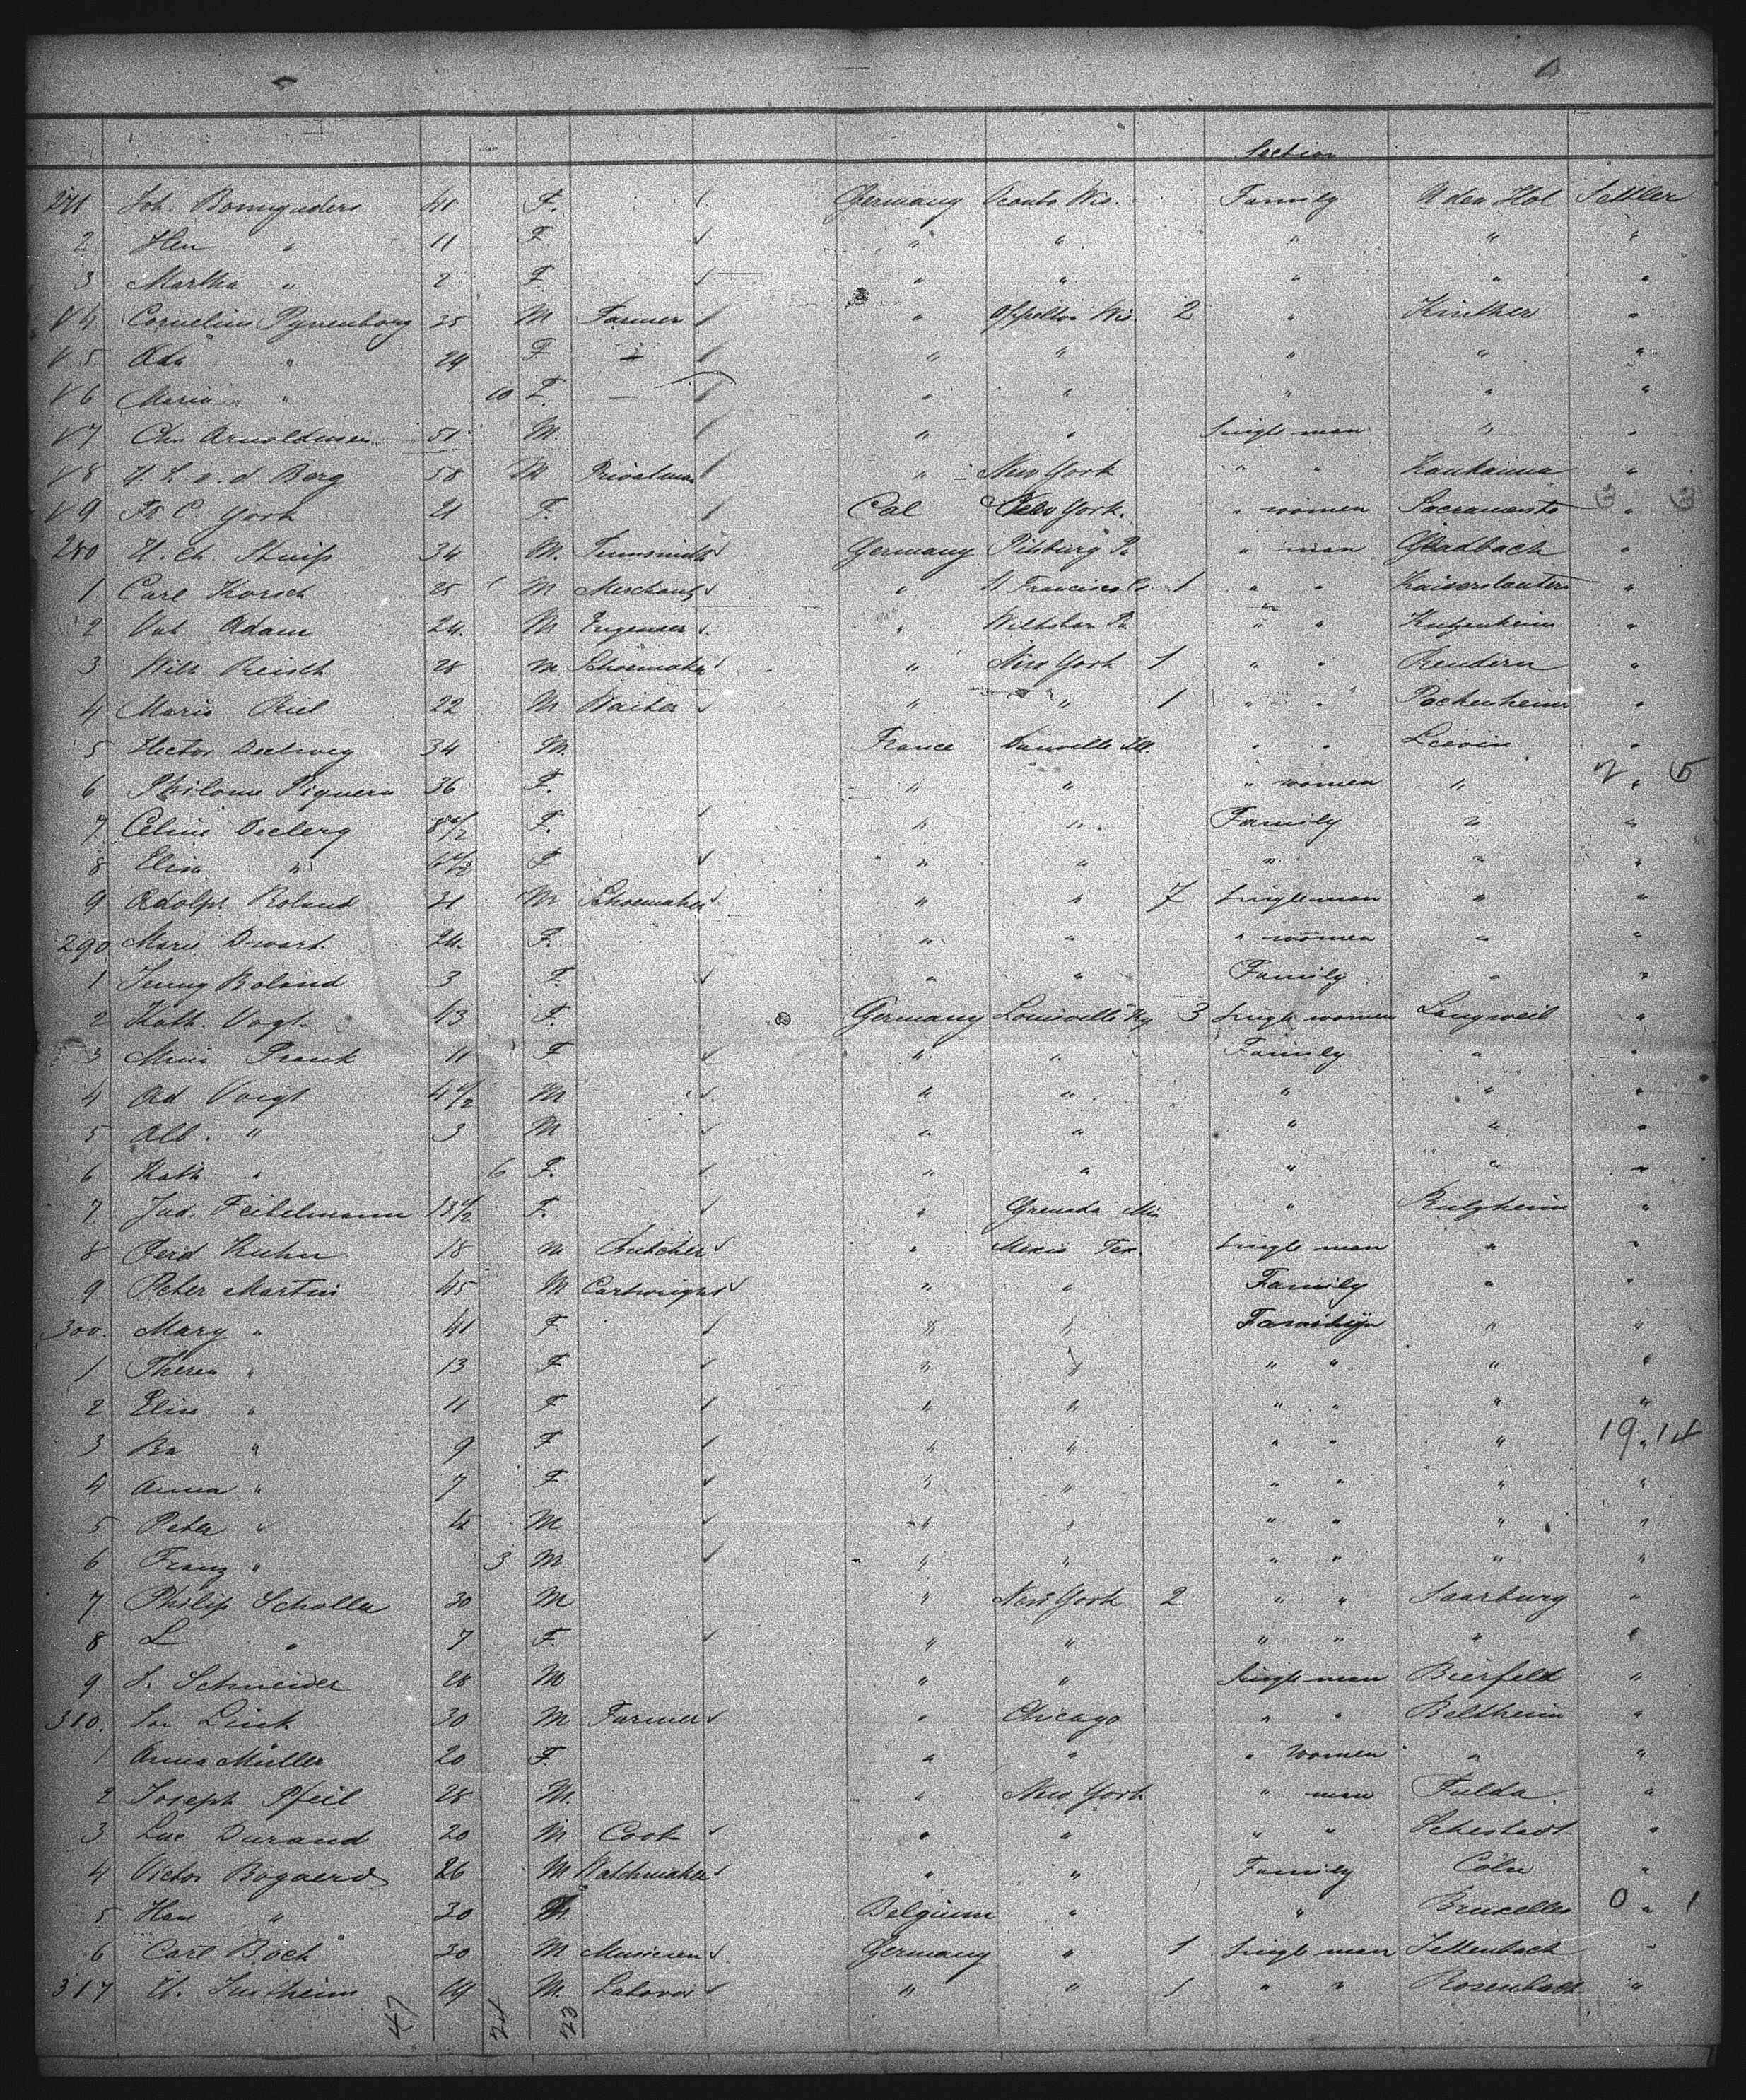 Section
271 Joh. Bomguders 41 F. Germany Oconto Wis. Family Uden Hol Settler
2 Hen " 11 F. " " " " "
3 Martha " 2 F. " " " " "
4 Cornelius Pynenborg 35 M Farmer " Appelton Wis. 2 " Kinther "
5 Ada " 24 F " " " " "
6 Maria " 10 F. " " " " "
7 Chr Arnoldussen 51 M. " " Single man " "
8 H. L. v. d Berg 58 M Privatman " New York " " Kaukauna "
9 Fr C. York 21 F. Cal New York. " women Sacramento " 3 3
280 H. Ch. Stuip 34 M. Germany Pitsburg Pa " man Gladbach "
1 Carl Korsch 25 M Merchant " S Francisco Ca. 1 " " Kaiserslautern "
2 Val Adam 24. M Engeneer " Pa " " Kutzenheim "
3 Wilh Reisch 28 M Shoemaker " New York 1 " " "
4 Maris Riel 22 M Waiter " " 1 " " "
5 Hector 34 M. France Danville Ill. " " "
6 36 F. " " " women " " 2 5
7 Celine 8 1/2 F. " " Family " "
8 Elisa " F " " " " "
9 Adolph Roland 31 M Shoemaker " " 7 Single man " "
290 Marie 24. F. " " " women " "
1 Jenny Roland 3 F. " " Family " "
2 Kath. Vogt 43 F. Germany Louisville Ky 3 Single women Langweil "
3 Frank 11 F " " Family " "
4 Ad Voigt 4 1/2 M " " " " "
5 Alb. " 3 M " " " " "
6 Kath " 6 F. " " " " "
7 Jud. Feibelmann 13 1/2 F. " Grenada Mis " Rülzheim "
8 Ferd Kuhn 18 M Butcher " Mexia Tex. Single man " "
9 Peter Martin 45 M Cartwright " " Family " "
300. Mary " 41 F " " Family " "
1 Theres " 13 F " " " " " "
2 Elis " 11 F " " " " " "
3 Ba " 9 F " " " " " " 19 14
4 Anna " 7 F " " " " " "
5 Peter " M " " " " " "
6 Franz " 3 M " " " " " "
7 Philip Scholler 30 M " New York 2 " " Saarburg "
8 L " 7 F. " " " " " "
9 S. Schneider 28 M " " Single man Bierfeld "
310. Link 30 M Farmer " Chicago " " Beltheim "
1 Anna Müller 20 F. " " " Women " "
2 Joseph Pfeil 28 M. " New York " man Fulda. "
3 Luc Durand 20 M Cook " " " " "
4 Victor Bogaerd 26 M Watchmaker " " Family Cöln "
5 " 30 Belgium " " Bruxelles " 0 1
6 Carl Bach 30 M Musicien Germany " 1 Single man "
317 H. 19 M. Labourer " " 1 " " Rosenbach "
47 24 23